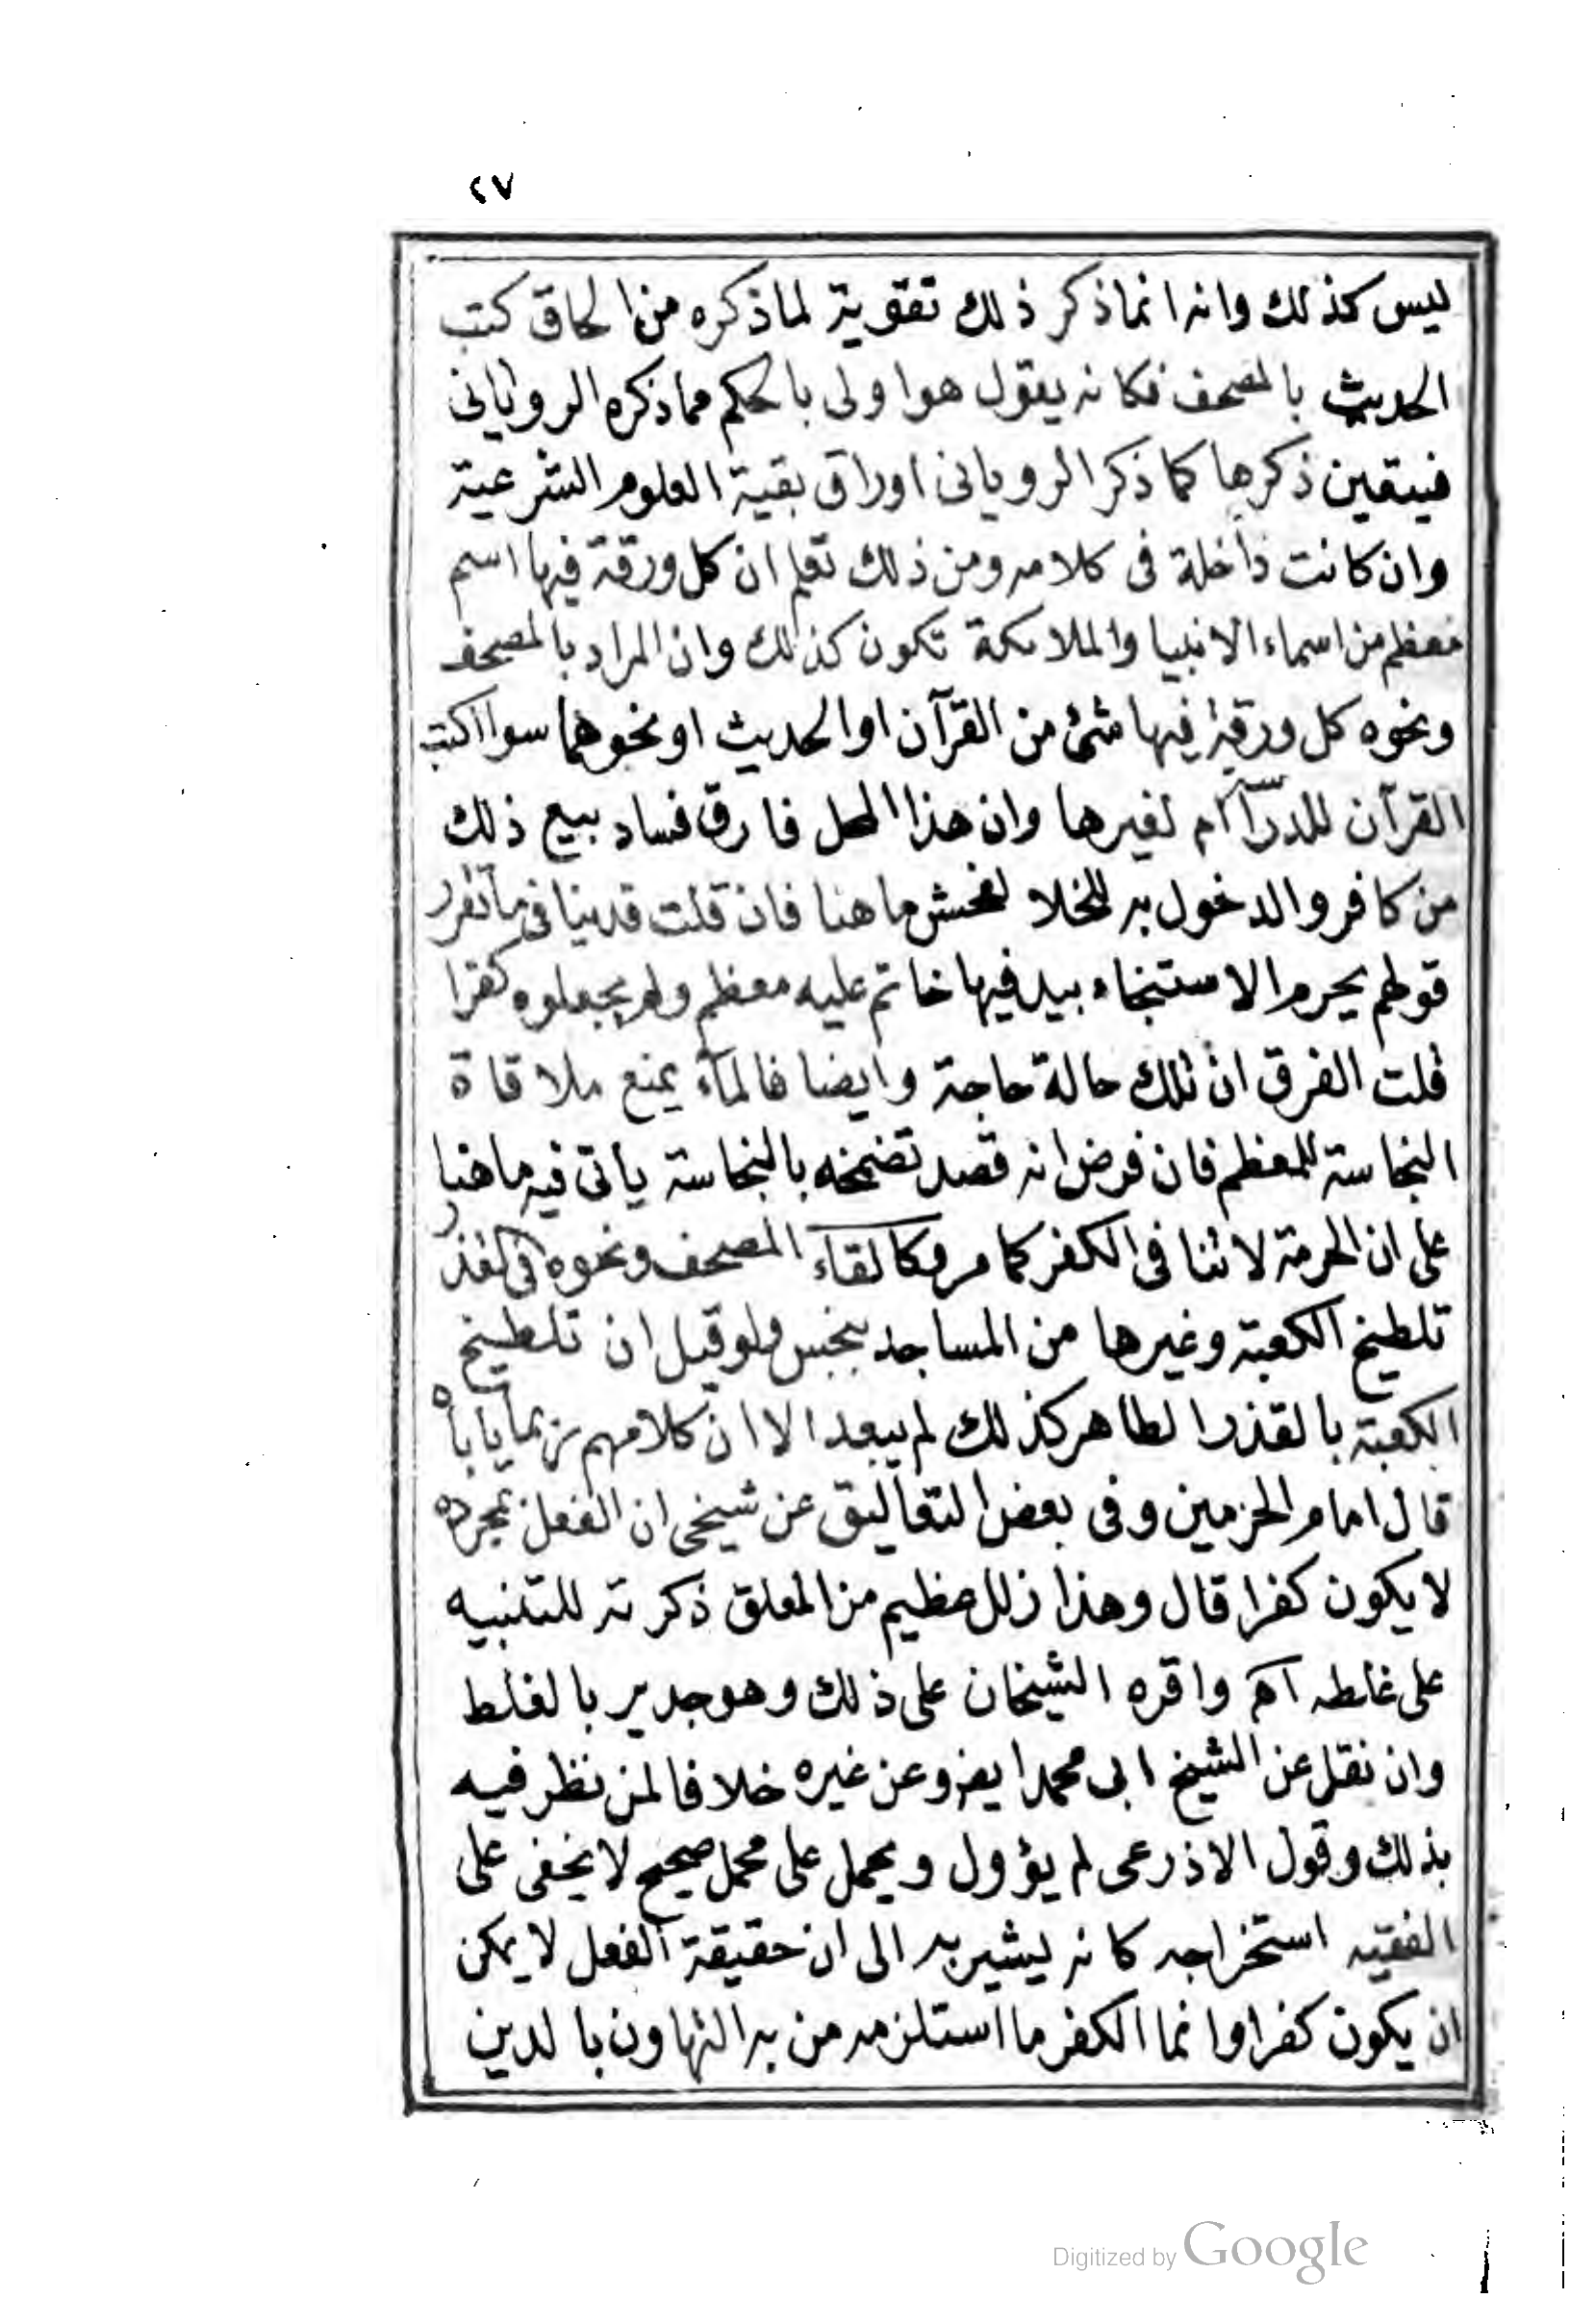 ٢٧
ليس كذلك وانه انما ذكر ذلك تقوية لما ذكره من الحاق كتب
الحديث بالمصحف فكانه يقول هو اولى بالحكم مما ذكره الروياني
فيتعين ذكرها كما ذكر الروياني اوراق بقية العلوم الشرعية
وان كانت داخلة في كلامه ومن ذلك تعلم ان كل ورقة فيها اسم
معظم من اسماء الانبيا والملائكة تكون كذلك وان المراد بالمصحف
ونحوه كل ورقة فيها شئ من القرآن او الحديث او نحوهما سوا اكتب
القرآن للدراسة ام لغيرها وان هذا المحل فارق فساد بيع ذلك
من كافر والدخول به للخلا لفحش ما هنا فان قلت قد ينافي ما تقرر
قولهم يحرم الاستنجاء بيد فيها خاتم عليه معظم ولم يجعلوه كفرا
قلت الفرق ان تلك حالة حاجة وايضا فالمآء يمنع ملاقاة
النجاسة للمعظم فان فرض انه قصد تضمخه بالنجاسة ياتي فيه ما هنا
على ان الحرمة لا تنا في الكفر كما مر وكالقاء المصحف ونحوه في القذر
تلطيخ الكعبة وغيرها من المساجد بنجس ولو قيل ان تلطيخ
الكعبة بالقذر الطاهر كذلك لم يبعد الا ان كلامهم ربما ياباه
قال امام الحرمين وفي بعض التعاليق عن شيخي ان الفعل بمجرده
لا يكون كفرا قال وهذا زلل عظيم من المعلق ذكرته للتنبيه
على غلطه آه واقره الشيخان على ذلك وهو جدير بالغلط
وان نقل عن الشيخ ابي محمد ايضا وعن غيره خلافا لمن نظر فيه
بذلك وقول الاذرعي لم يؤول ويحمل على محمل صحيح لا يخفى على
الفقيه استخراجه كانه ليشير به الى ان حقيقة الفعل لا يمكن
ان يكون كفرا وانما الكفر ما استلزمه من به التهاون بالدين
Digitized by Google